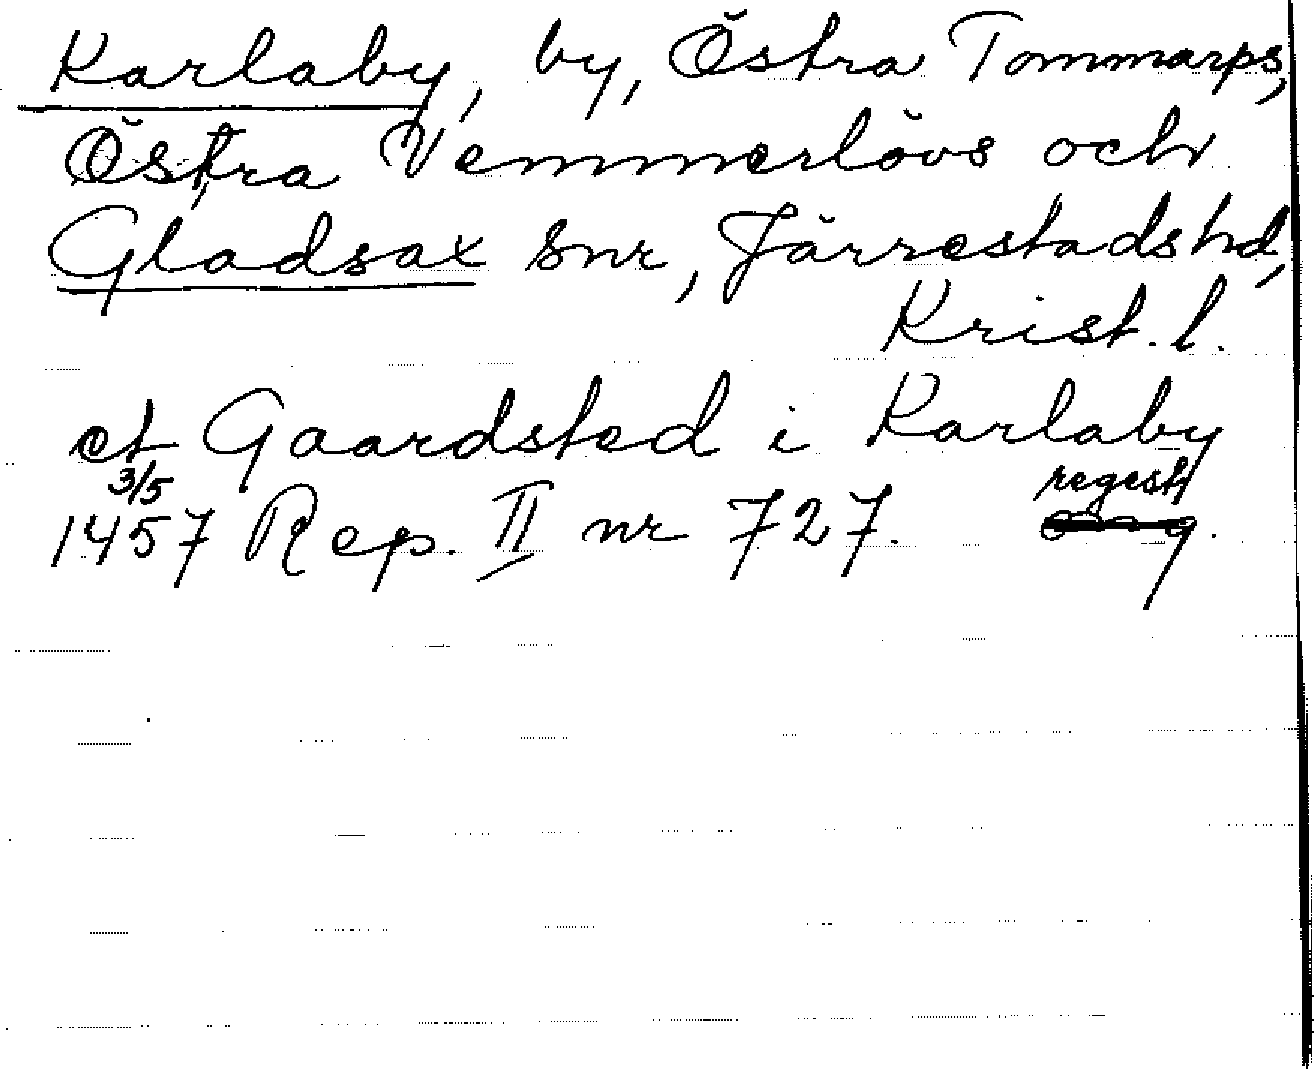 Karlaby, by, Östra Tommarps,
Östra Vemmerlövs och
Gladsax snr, Järrestads hd,
Krist. l.
et Gaardsted i Karlaby
3/5 regest
1457 Rep. II nr 727.